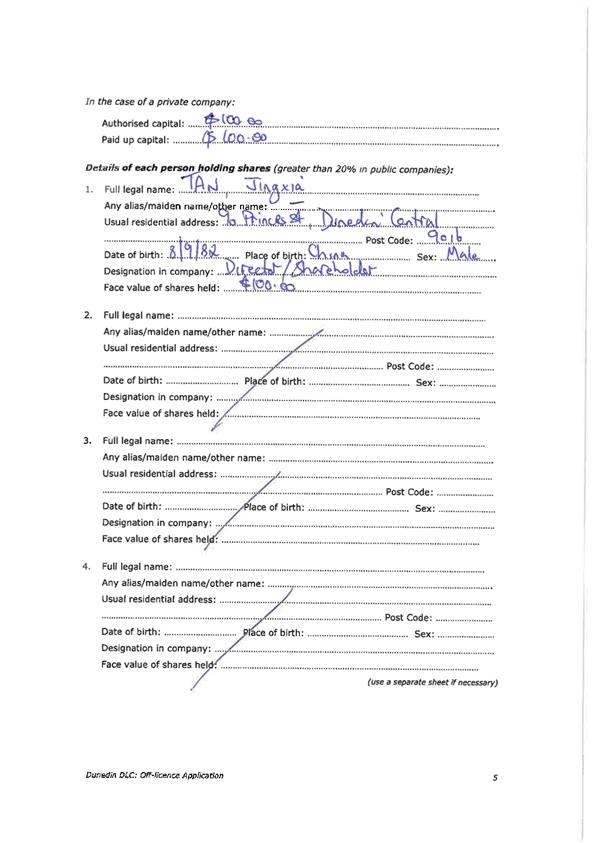 In the case of a private company:
Authorised capital: $100.00
Paid up capital: $100.00
Details of each person holding shares (greater than 20% in public companies):
1. Full legal name: TAN, Jingxia
Any alias/maiden name/other name: —
Usual residential address: Princes St, Dunedin Central
Post Code: 9016
Date of birth: 8/9/82 Place of birth: China Sex: Male
Designation in company: Director/Shareholder
Face value of shares held: $100.00
2. Full legal name:
Any alias/maiden name/other name:
Usual residential address:
Post Code:
Date of birth: Place of birth: Sex:
Designation in company:
Face value of shares held:
3. Full legal name:
Any alias/maiden name/other name:
Usual residential address:
Post Code:
Date of birth: Place of birth: Sex:
Designation in company:
Face value of shares held:
4. Full legal name:
Any alias/maiden name/other name:
Usual residential address:
Post Code:
Date of birth: Place of birth: Sex:
Designation in company:
Face value of shares held:
(use a separate sheet if necessary)
Dunedin DLC: Off-licence Application 5